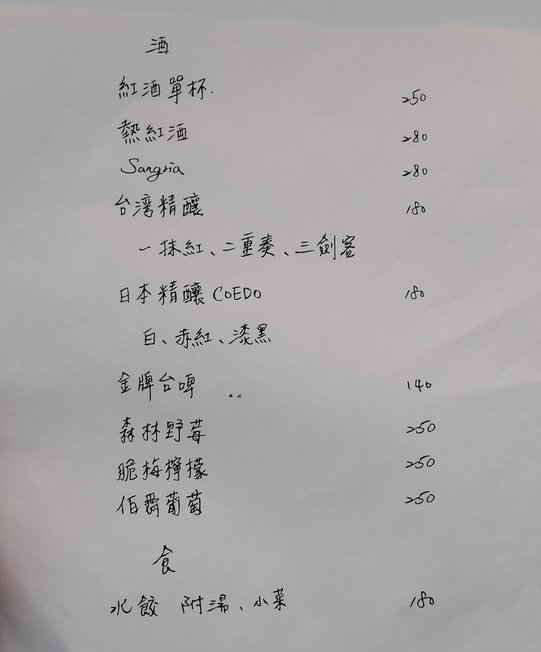 酒
紅酒單杯. 250
熱紅酒 280
Sangria 280
台湾精釀 180
一抹紅、二重奏、三劍客
日本精釀 COEDO 180
白、赤紅、漆黑
金牌台啤 140
森林野莓 250
脆梅檸檬 250
伯爵葡萄 250
食
水餃 附湯、小菜 180